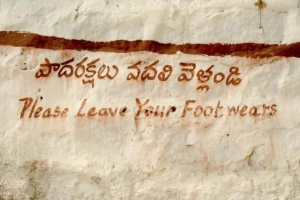 పాదరక్షలు వదలి వెళ్లండి
Please Leave Your Foot wears